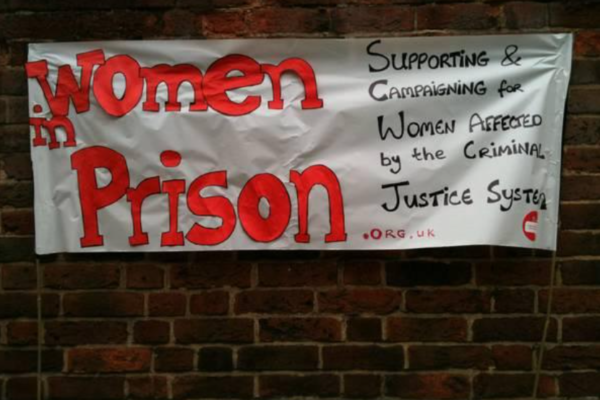 Women
in
Prison
Supporting &
Campaigning for
Women Affected
by the Criminal
Justice System
.org.uk